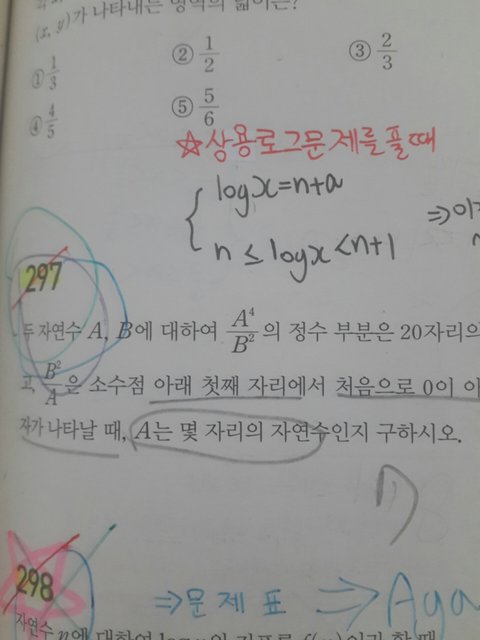 (x, y)가 나타내는 영역의 넓이는?
① 1/3 ② 1/2 ③ 2/3
④ 4/5 ⑤ 5/6
☆상용로그문제를 풀때
logx=n+a
n ≤ logx < n+1
⇒이
297
두 자연수 A, B에 대하여 A⁴/B² 의 정수 부분은 20자리의
고 B²/A은 소수점 아래 첫째 자리에서 처음으로 0이 아
자가 나타날 때, A는 몇 자리의 자연수인지 구하시오.
298
⇒문제 표 ⇒Aga
자연수 n에 대하여 log